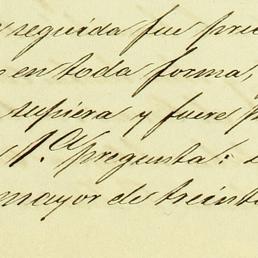 seguida fue
en toda forma,
supiera y fuere
1.ª pregunta:
mayor de treinta